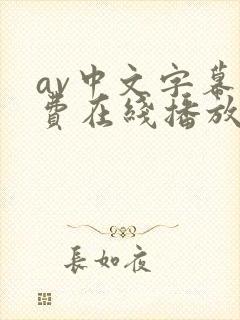 av中文字幕
費在綫播放
長如夜